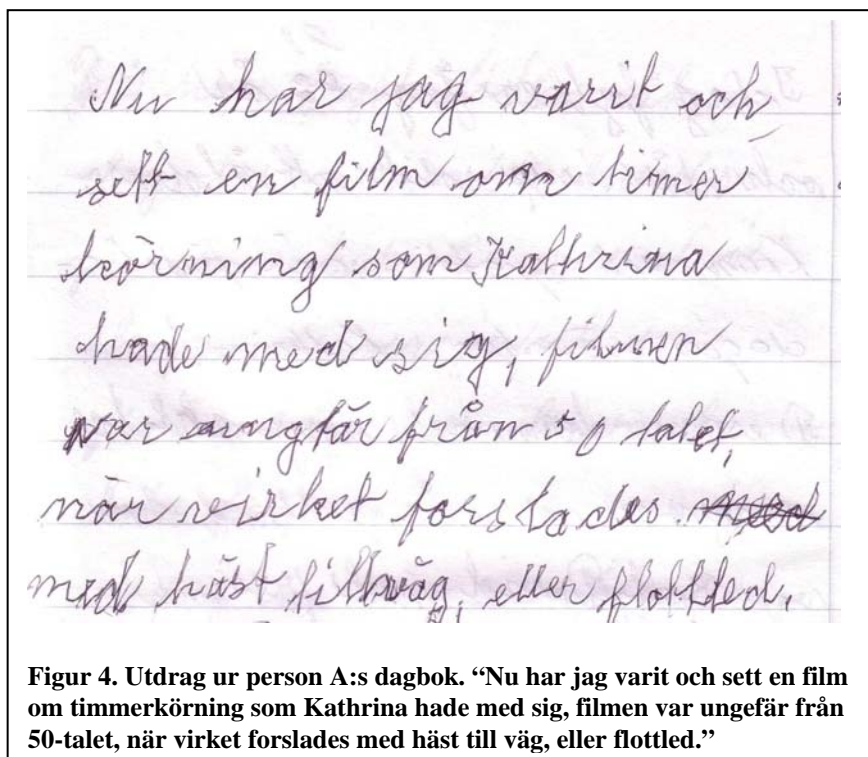 Nu har jag varit och
sett en film om timer
körning som Kathrina
hade med sig, filmen
var ungfär från 50 talet,
när virket forslades med
med häst till väg, eller flottled.
Figur 4. Utdrag ur person A:s dagbok. “Nu har jag varit och sett en film
om timmerkörning som Kathrina hade med sig, filmen var ungefär från
50-talet, när virket forslades med häst till väg, eller flottled.”